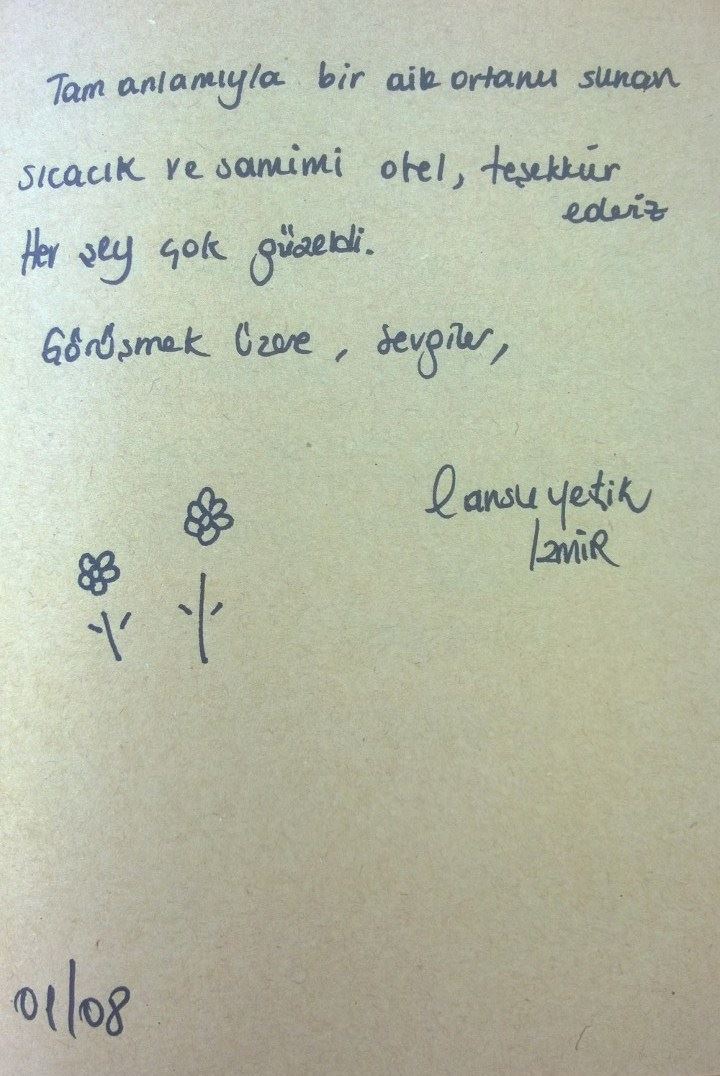 Tam anlamıyla bir aile ortamı sunan
sıcacık ve samimi otel, teşekkür
ederiz
Her şey çok güzeldi.
Görüşmek üzere, sevgiler,
Cansu yetik
İzmİR
01/08